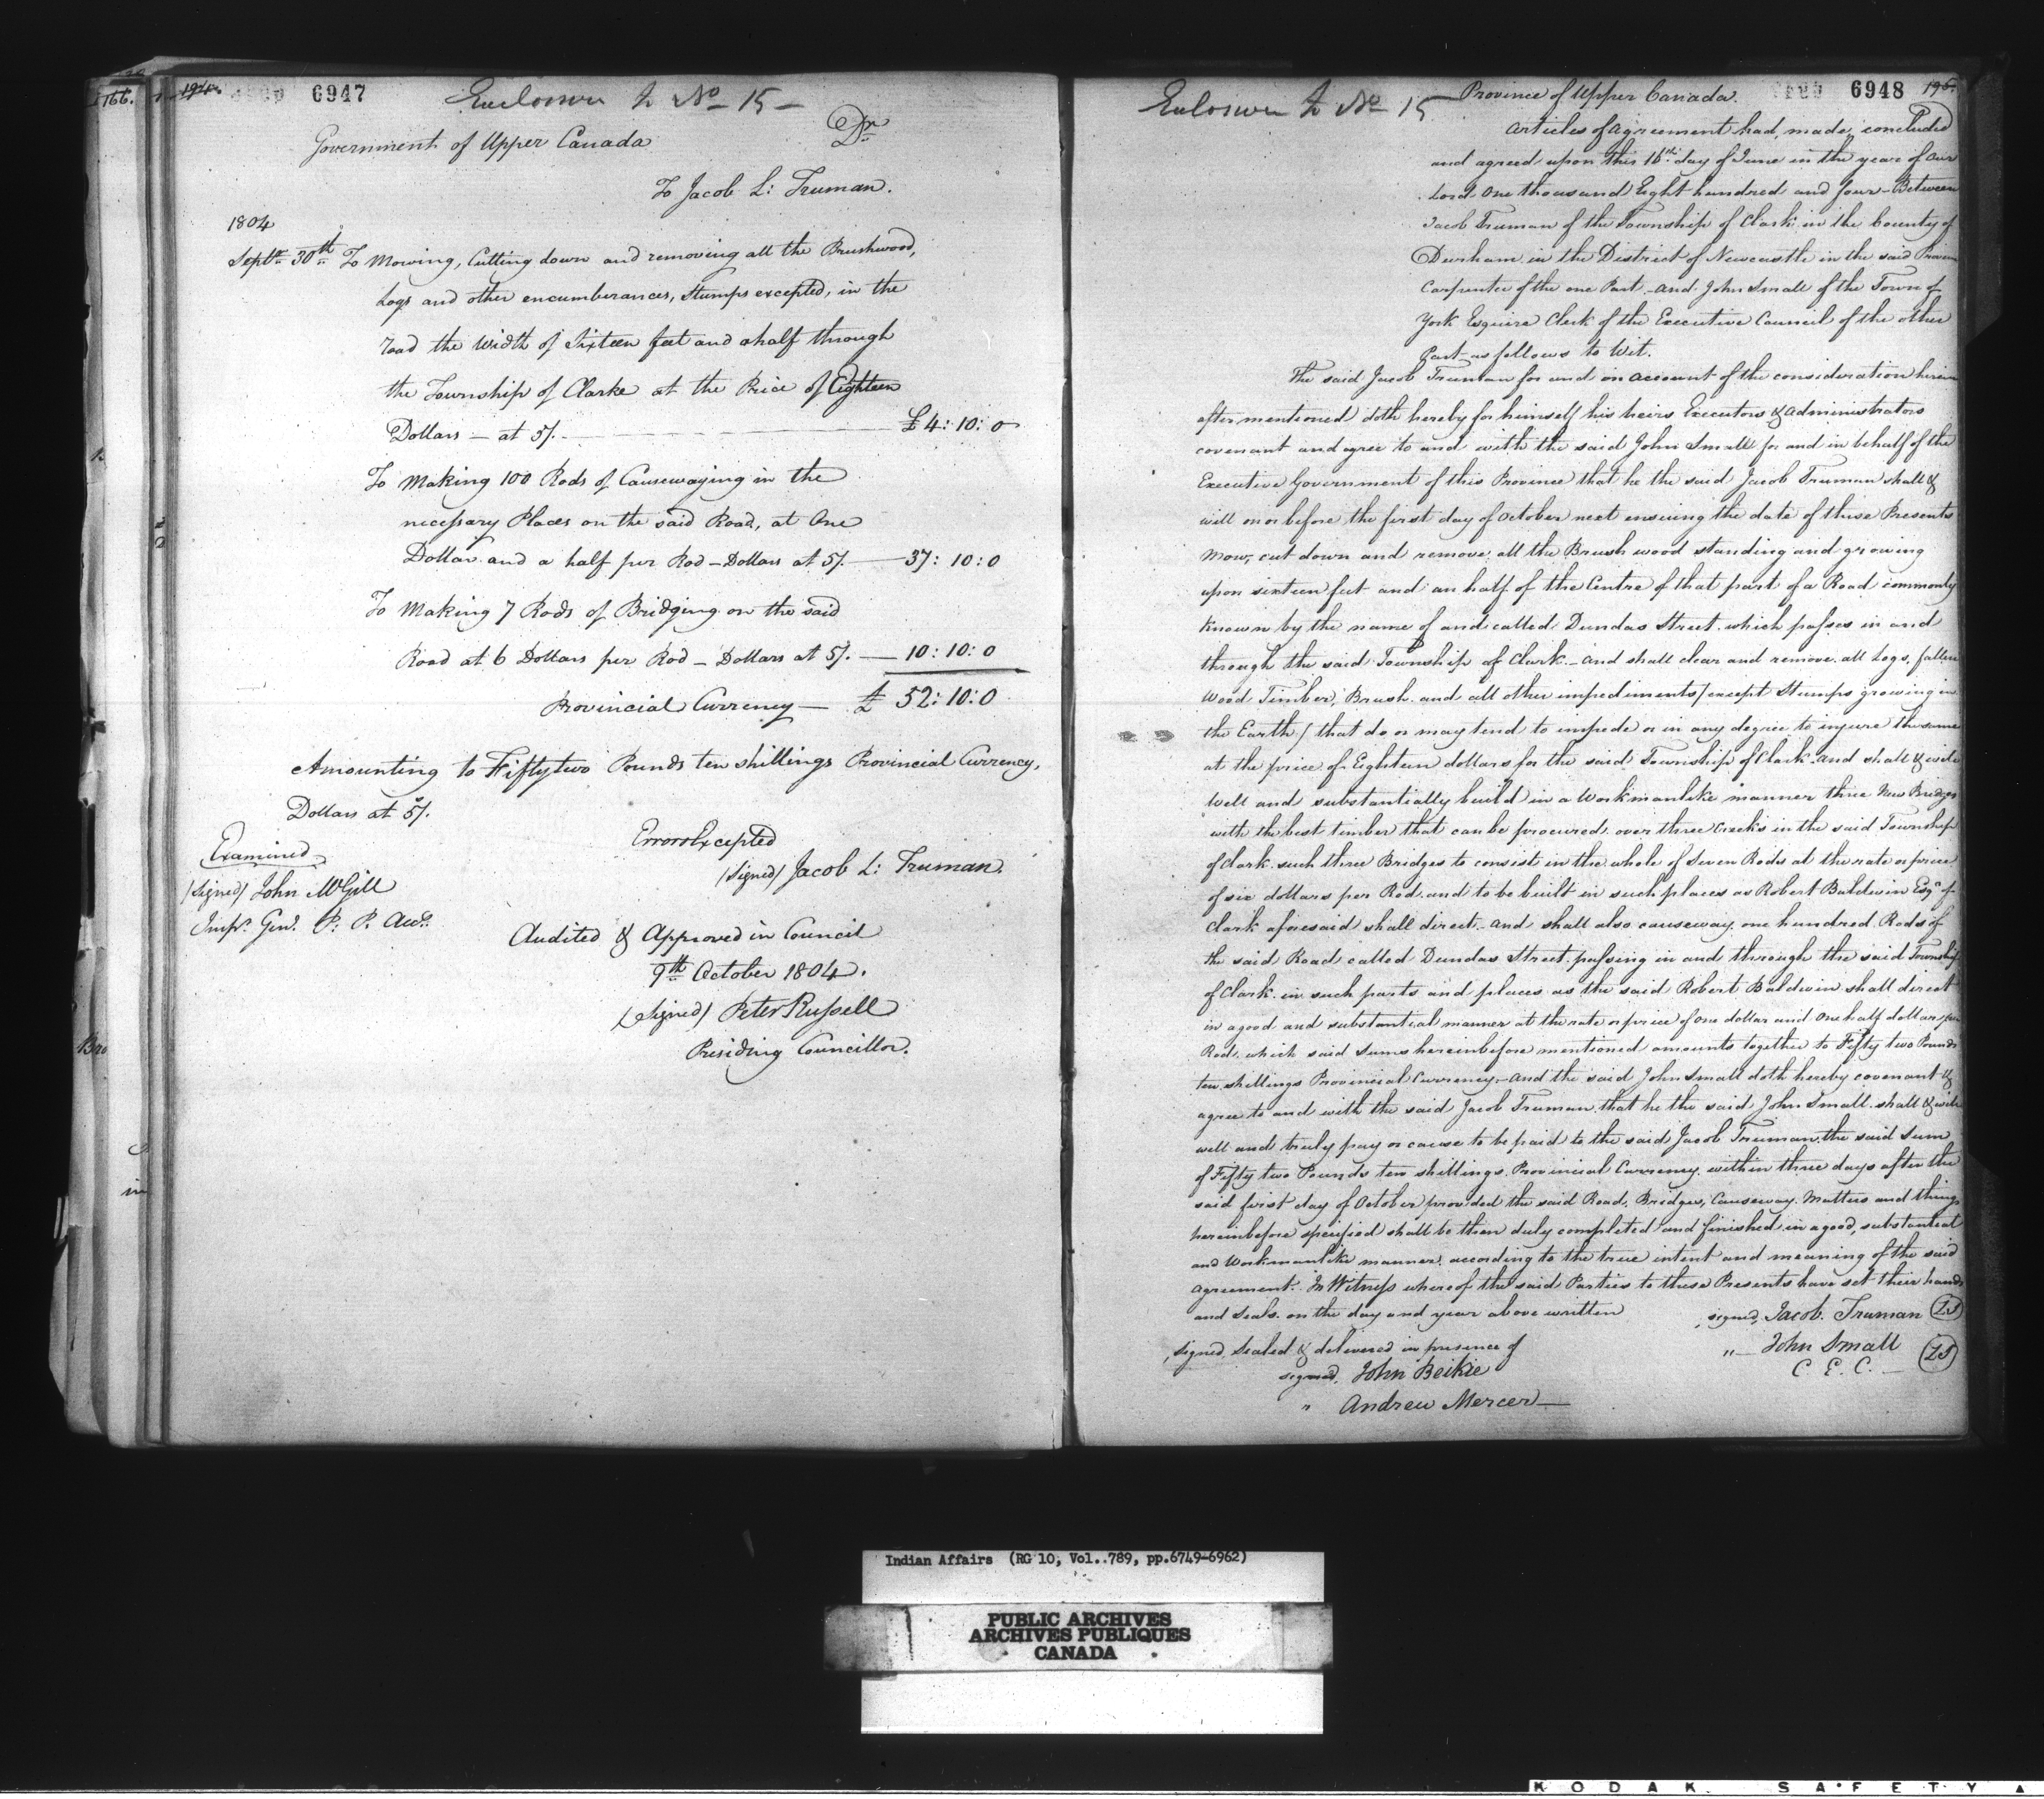 166.
194.
6947
Enclosure to No 15 –
Government of Upper Canada
Dr
To Jacob L: Truman.
1804
Septr 30th To Mowing, Cutting down and removing all the Brushwood,
Logs and other encumberances, Stumps excepted, in the
road the Width of Sixteen feet and a half through
the Township of Clarke at the Price of Eighteen
Dollars – at 5/. £4:10:0
To Making 100 Rods of Causewaying in the
necessary Places on the said Road, at One
Dollar and a half per Rod – Dollars at 5/. 37:10:0
To Making 7 Rods of Bridging on the said
Road at 6 Dollars per Rod – Dollars at 5/. 10:10:0
Provincial Currency – £ 52:10:0
Amounting to Fifty two Pounds ten shillings Provincial Currency,
Dollars at 5/.
Errors Excepted
(Signed) Jacob L: Truman.
Examined
(Signed) John McGill
Inspr. Genl. P. P. Accts.
Audited & Approved in Council
9th October 1804.
(Signed) Peter Russell
Presiding Councillor.
Enclosure to No 15
Province of Upper Canada.
6948
195.
Articles of agreement had, made, concluded
and agreed upon this 16th day of June in the year of our
Lord One thousand Eight hundred and four – Between
Jacob Truman of the Township of Clark in the County of
Durham in the District of Newcastle in the said Province
Carpenter of the one Part – and John Small of the Town of
York Esquire Clerk of the Executive Council of the other
Part as follows to Wit.
The said Jacob Truman for and on account of the consideration herein
after mentioned doth hereby for himself his heirs Executors & administrators
covenant and agree to and with the said John Small for and in behalf of the
Executive Government of this Province that he the said Jacob Truman shall &
will on or before the first day of October next ensuing the date of these Presents
Mow, cut down and remove all the Brush wood standing and growing
upon sixteen feet and an half of the Centre of that part of a Road commonly
known by the name of and called Dundas Street which passes in and
through the said Township of Clark – and shall clear and remove all Logs, fallen
Wood Timber, Brush and all other impediments / except Stumps growing in
the Earth / that do or may tend to impede or in any degree to injure the same
at the price of Eighteen dollars for the said Township of Clark and shall & will
Well and substantially build in a Workmanlike manner three New Bridges
with the best timber that can be procured over three Creeks in the said Township
of Clark such three Bridges to consist in the whole of Seven Rods at the rate or price
of six dollars per Rod and to be built in such places as Robert Baldwin Esqr of
Clark aforesaid shall direct – and shall also causeway one hundred Rods of
the said Road called Dundas Street passing in and through the said Township
of Clark in such parts and places as the said Robert Baldwin shall direct
in a good and substantial manner at the rate or price of one dollar and One half dollar per
Rod, which said Sums hereinbefore mentioned amounts together to Fifty two Pounds
ten shillings Provincial Currency – and the said John Small doth hereby covenant &
agree to and with the said Jacob Truman that he the said John Small shall & will
well and truly pay or cause to be paid to the said Jacob Truman the said Sum
of Fifty two Pounds ten shillings Provincial Currency within three days after the
said first day of October provided the said Road, Bridges, Causeway Matters and things
hereinbefore specified shall be then duly completed and finished in a good, substantial
and Workmanlike manner according to the true intent and meaning of the said
agreement. In Witness whereof the said Parties to these Presents have set their hands
and Seals on the day and year above written
signed, Jacob Truman LS
signed, Sealed & delivered in presence of
" – John Small LS
C. E. C. –
signed, John Beikie
" Andrew Mercer –
Indian Affairs (RG 10, Vol..789, pp.6749-6962)
PUBLIC ARCHIVES
ARCHIVES PUBLIQUES
CANADA
KODAK SAFETY